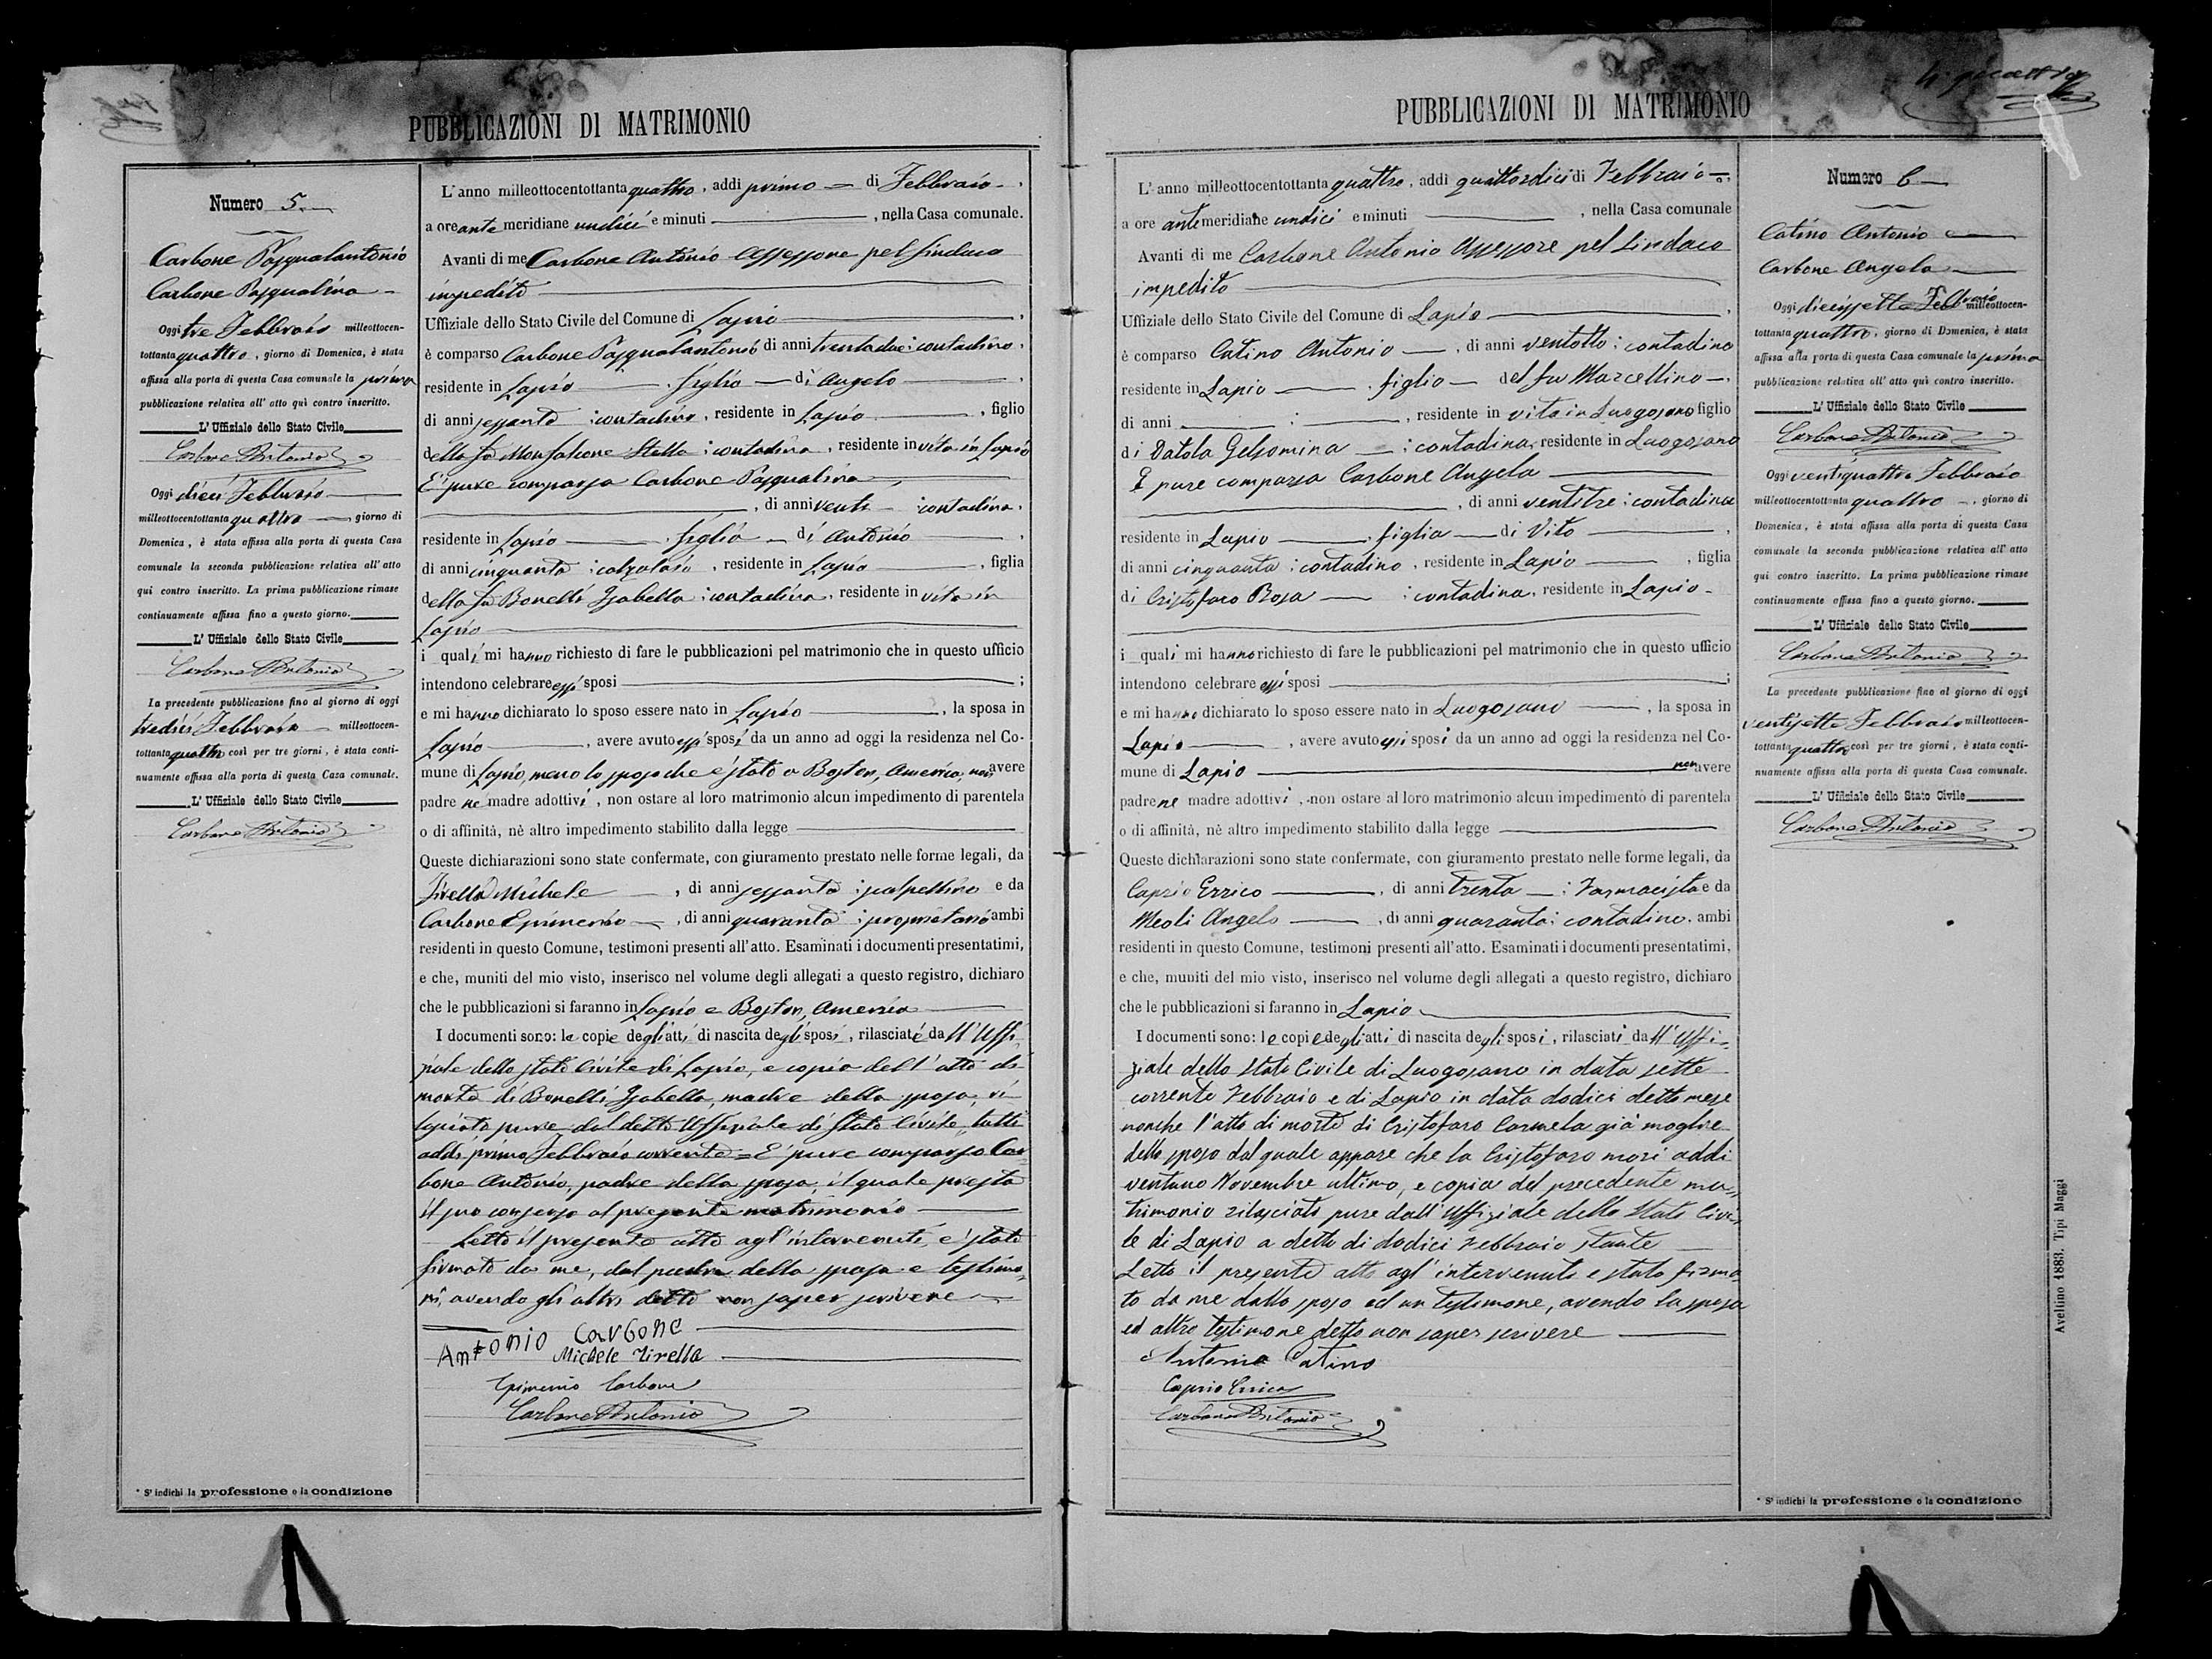 PUBBLICAZIONI DI MATRIMONIO
Numero 5.
Carbone Pasqualantonio
Carbone Pasqualina
Oggi tre Febbraio milleottocen-
tottanta quattro, giorno di Domenica, è stata
affissa alla porta di questa Casa comunale la prima
pubblicazione relativa all' atto quì contro inscritto.
L' Uffiziale dello Stato Civile
Carbone Antonio
Oggi dieci Febbraio
milleottocentottanta quattro giorno di
Domenica, è stata affissa alla porta di questa Casa
comunale la seconda pubblicazione relativa all' atto
qui contro inscritto. La prima pubblicazione rimase
continuamente affissa fino a questo giorno.
L' Uffiziale dello Stato Civile
Carbone Antonio
La precedente pubblicazione fino al giorno di oggi
tredici Febbraio milleottocen-
tottanta quattro così per tre giorni, è stata conti-
nuamente affissa alla porta di questa Casa comunale.
L' Uffiziale dello Stato Civile
Carbone Antonio
* S' indichi la professione o la condizione
L' anno milleottocentottanta quattro, addì primo = di Febbraio,
a ore ante meridiane undici e minuti , nella Casa comunale.
Avanti di me Carbone Antonio Assessore pel Sindaco
impedito
Uffiziale dello Stato Civile del Comune di Lapio,
è comparso Carbone Pasqualantonio di anni trentadue: contadino,
residente in Lapio, figlio di Angelo,
di anni sessanta : contadino, residente in Lapio, figlio
della fu Monfalcone Stella : contadina, residente in vita in Lapio
E' pure comparsa Carbone Pasqualina
, di anni venti contadina,
residente in Lapio, figlia di Antonio,
di anni cinquanta : calzolaio, residente in Lapio, figlia
della fu Bonelli Isabella : contadina, residente in vita in
Lapio
i quali mi hanno richiesto di fare le pubblicazioni pel matrimonio che in questo ufficio
intendono celebrare essi sposi ;
e mi hanno dichiarato lo sposo essere nato in Lapio, la sposa in
Lapio, avere avuto essi sposi da un anno ad oggi la residenza nel Co-
mune di Lapio, meno lo sposo che è stato a Boston, America, non avere
padre ne madre adottivi, non ostare al loro matrimonio alcun impedimento di parentela
o di affinità, nè altro impedimento stabilito dalla legge
Queste dichiarazioni sono state confermate, con giuramento prestato nelle forme legali, da
Tirella Michele, di anni sessanta : scalpellino e da
Carbone Epimenio, di anni quaranta : proprietario ambi
residenti in questo Comune, testimoni presenti all'atto. Esaminati i documenti presentatimi,
e che, muniti del mio visto, inserisco nel volume degli allegati a questo registro, dichiaro
che le pubblicazioni si faranno in Lapio e Boston, America
I documenti sono: le copie degli atti di nascita degli sposi, rilasciate dall'Uffi-
ziale dello stato Civile di Lapio, e copia dell'atto di
morte di Bonelli Isabella, madre della sposa, ri
lasciata pure dal detto Uffiziale di Stato Civile, tutti
addì primo Febbraio corrente = E' pure comparso Car
bone Antonio, padre della sposa, il quale presta
il suo consenso al presente matrimonio
Letto il presente atto agl'intervenuti, è stato
firmato da me, dal padre della sposa e testimo,
ni, avendo gli altri detto non saper scrivere
Antonio Carbone
Michele Tirella
Epimenio Carbone
Carbone Antonio
PUBBLICAZIONI DI MATRIMONIO
L' anno milleottocentottanta quattro, addì quattordici di Febbraio,
a ore antemeridiane undici e minuti , nella Casa comunale
Avanti di me Carbone Antonio Assessore pel Sindaco
impedito
Uffiziale dello Stato Civile del Comune di Lapio,
è comparso Catino Antonio, di anni ventotto : contadino
residente in Lapio, figlio del fu Marcellino,
di anni : , residente in vita in Luogosano figlio
di Datola Gelsomina : contadina, residente in Luogosano
È pure comparsa Carbone Angela
, di anni ventitre : contadina
residente in Lapio, figlia di Vito,
di anni cinquanta : contadino, residente in Lapio, figlia
di Cristofaro Rosa : contadina, residente in Lapio
i quali mi hanno richiesto di fare le pubblicazioni pel matrimonio che in questo ufficio
intendono celebrare essi sposi ;
e mi hanno dichiarato lo sposo essere nato in Luogosano, la sposa in
Lapio, avere avuto essi sposi da un anno ad oggi la residenza nel Co-
mune di Lapio non avere
padre ne madre adottivi, non ostare al loro matrimonio alcun impedimento di parentela
o di affinità, nè altro impedimento stabilito dalla legge
Queste dichiarazioni sono state confermate, con giuramento prestato nelle forme legali, da
Caprio Errico, di anni trenta : Farmacista e da
Meoli Angelo, di anni quaranta : contadino, ambi
residenti in questo Comune, testimoni presenti all'atto. Esaminati i documenti presentatimi,
e che, muniti del mio visto, inserisco nel volume degli allegati a questo registro, dichiaro
che le pubblicazioni si faranno in Lapio
I documenti sono: le copie degli atti di nascita degli sposi, rilasciati dall'Uffi-
ziale dello Stato Civile di Luogosano in data sette
corrente Febbraio e di Lapio in data dodici detto mese
nonche l'atto di morte di Cristofaro Carmela già moglie
dello sposo dal quale appare che la Cristofaro morì addì
ventuno Novembre ultimo, e copia del precedente ma,
trimonio rilasciato pure dall'Uffiziale dello Stato Civi,
le di Lapio a detto dì dodici Febbraio stante
Letto il presente atto agl'intervenuti e stato firma,
to da me dallo sposo ed un testimone, avendo la sposa
ed altro testimone detto non saper scrivere
Antonio Catino
Caprio Errico
Carbone Antonio
Numero 6
Catino Antonio
Carbone Angela
Oggi diecissette Febbraio milleottocen-
tottanta quattro, giorno di Domenica, è stata
affissa alla porta di questa Casa comunale la prima
pubblicazione relativa all' atto quì contro inscritto.
L' Uffiziale dello Stato Civile
Carbone Antonio
Oggi ventiquattro Febbraio
milleottocentottanta quattro, giorno di
Domenica, è stata affissa alla porta di questa Casa
comunale la seconda pubblicazione relativa all' atto
qui contro inscritto. La prima pubblicazione rimase
continuamente affissa fino a questo giorno.
L' Uffiziale dello Stato Civile
Carbone Antonio
La precedente pubblicazione fino al giorno di oggi
ventisette Febbraio milleottocen-
tottanta quattro così per tre giorni, è stata conti-
nuamente affissa alla porta di questa Casa comunale.
L' Uffiziale dello Stato Civile
Carbone Antonio
* S' indichi la professione o la condizione
Avellino 1883. Tipi Maggi